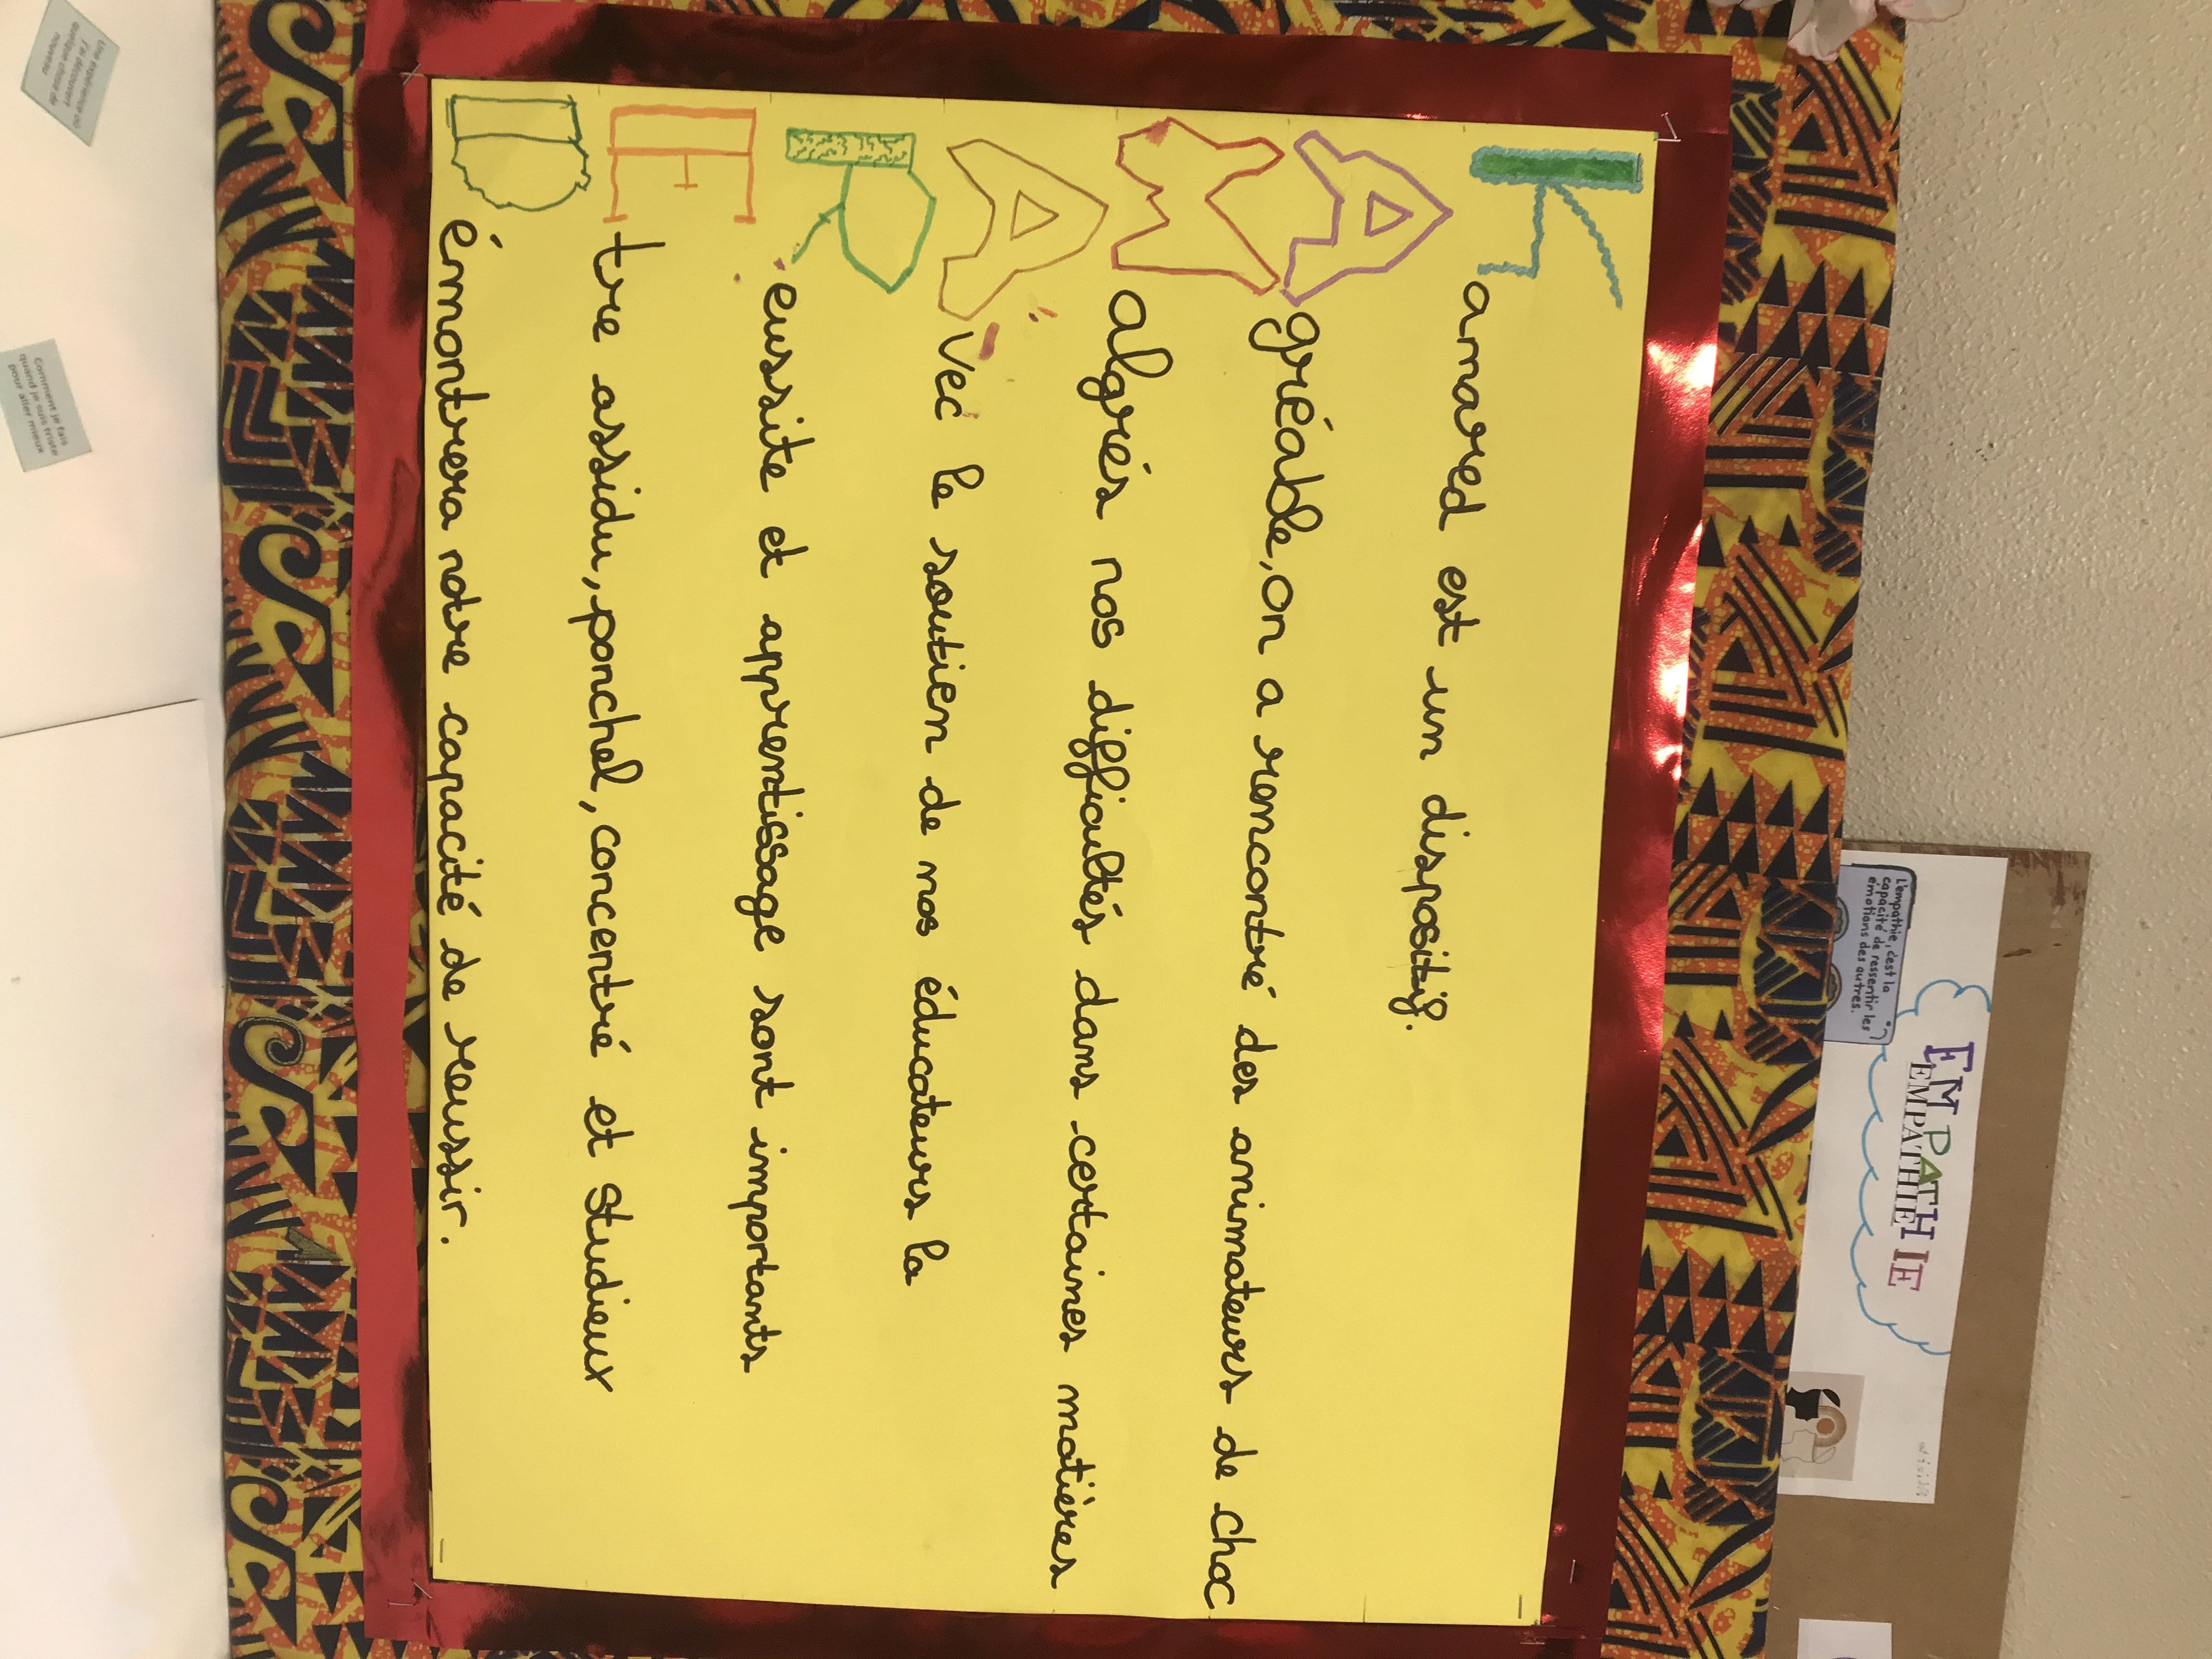 Kamared est un dispositif.
Agréable, on a rencontré des animateurs de choc
Malgrés nos difficultés dans certaines matières
Avec le soutien de nos éducateurs la
Reussite et apprentissage sont importants
Etre assidu, ponchel, concentré et studieux
Démontrera notre capacité de reussir.
EMPATHIE
EMPATHIE
L'empathie, c'est la
capacité de ressentir les
émotions des autres.
Une expérience où
j'ai découvert
quelque chose de
nouveau
Comment je fais
quand je suis triste
pour aller mieux